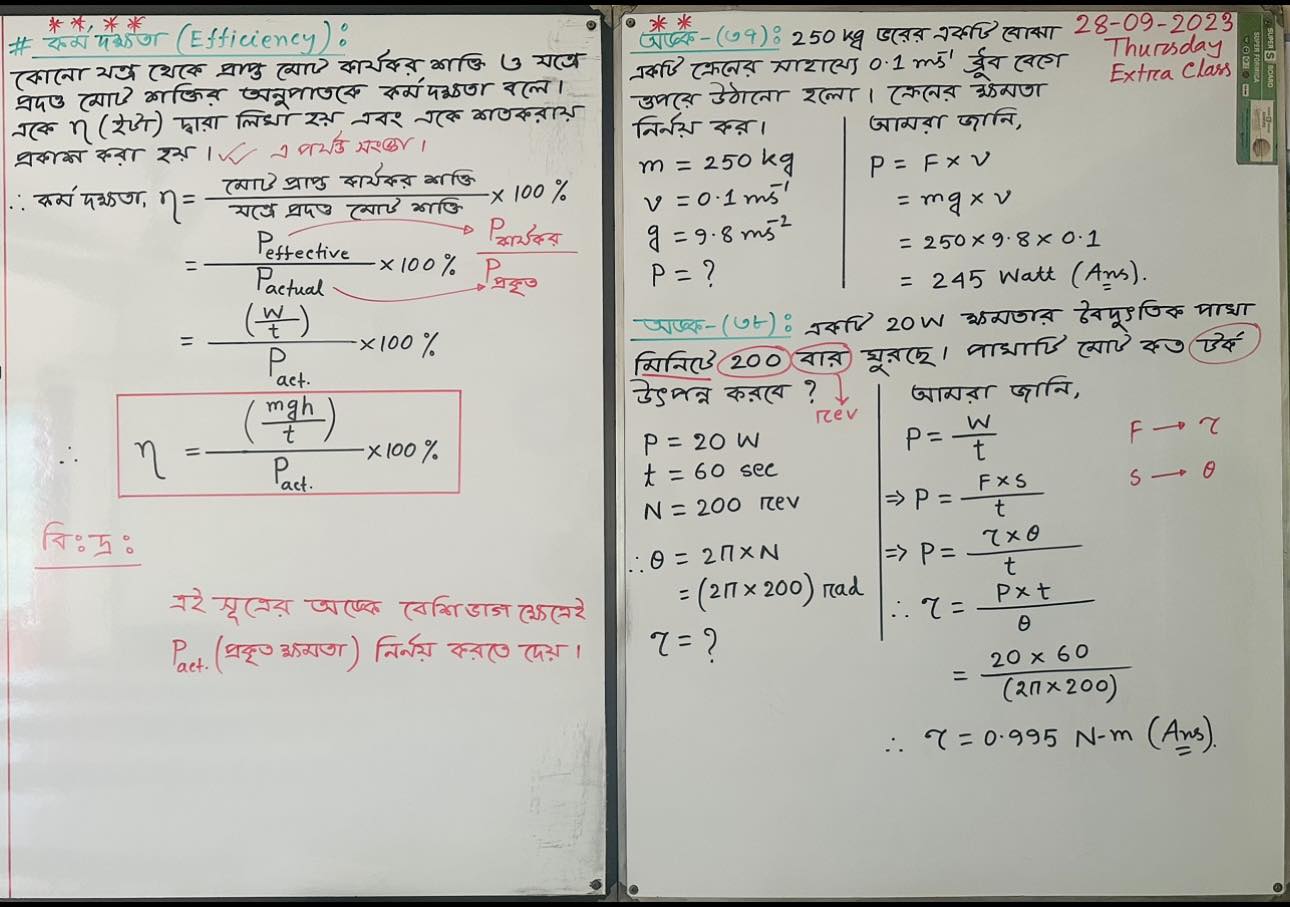 # কর্মদক্ষতা (Efficiency):
কোনো যন্ত্র থেকে প্রাপ্ত মোট কার্যকর শক্তি ও যন্ত্রে
প্রদত্ত মোট শক্তির অনুপাতকে কর্মদক্ষতা বলে।
একে η (ইটা) দ্বারা লিখা হয় এবং একে শতকরায়
প্রকাশ করা হয়। ✓ এ পর্যন্ত সংজ্ঞা।
∴ কর্মদক্ষতা, η = মোট প্রাপ্ত কার্যকর শক্তি / যন্ত্রে প্রদত্ত মোট শক্তি × 100%
= P effective / P actual × 100% → P কার্যকর / P প্রকৃত
= (W/t) / P act. × 100%
∴ η = (mgh/t) / P act. × 100%
বি:দ্র:
এই সূত্রের অঙ্কে বেশিভাগ ক্ষেত্রেই
P act. (প্রকৃত ক্ষমতা) নির্নয় করতে দেয়।
28-09-2023
Thursday
Extra Class
অঙ্ক-(৩৭): 250 kg ভরের একটি বোঝা
একটি ক্রেনের সাহায্যে 0.1 ms⁻¹ ধ্রুব বেগে
উপরে উঠানো হলো। ক্রেনের ক্ষমতা
নির্নয় কর।
m = 250 kg
v = 0.1 ms⁻¹
g = 9.8 ms⁻²
P = ?
আমরা জানি,
P = F × v
= mg × v
= 250 × 9.8 × 0.1
= 245 Watt (Ans).
অঙ্ক-(৩৮): একটি 20W ক্ষমতার বৈদ্যুতিক পাখা
মিনিটে 200 বার ঘুরছে। পাখাটি মোট কত টর্ক
উৎপন্ন করবে?
rev
P = 20 W
t = 60 sec
N = 200 rev
∴ θ = 2π × N
= (2π × 200) rad
τ = ?
আমরা জানি,
P = W/t
⇒ P = F × S / t
⇒ P = τ × θ / t
∴ τ = P × t / θ
= 20 × 60 / (2π × 200)
∴ τ = 0.995 N-m (Ans).
F → τ
S → θ
SUPER S BOARD